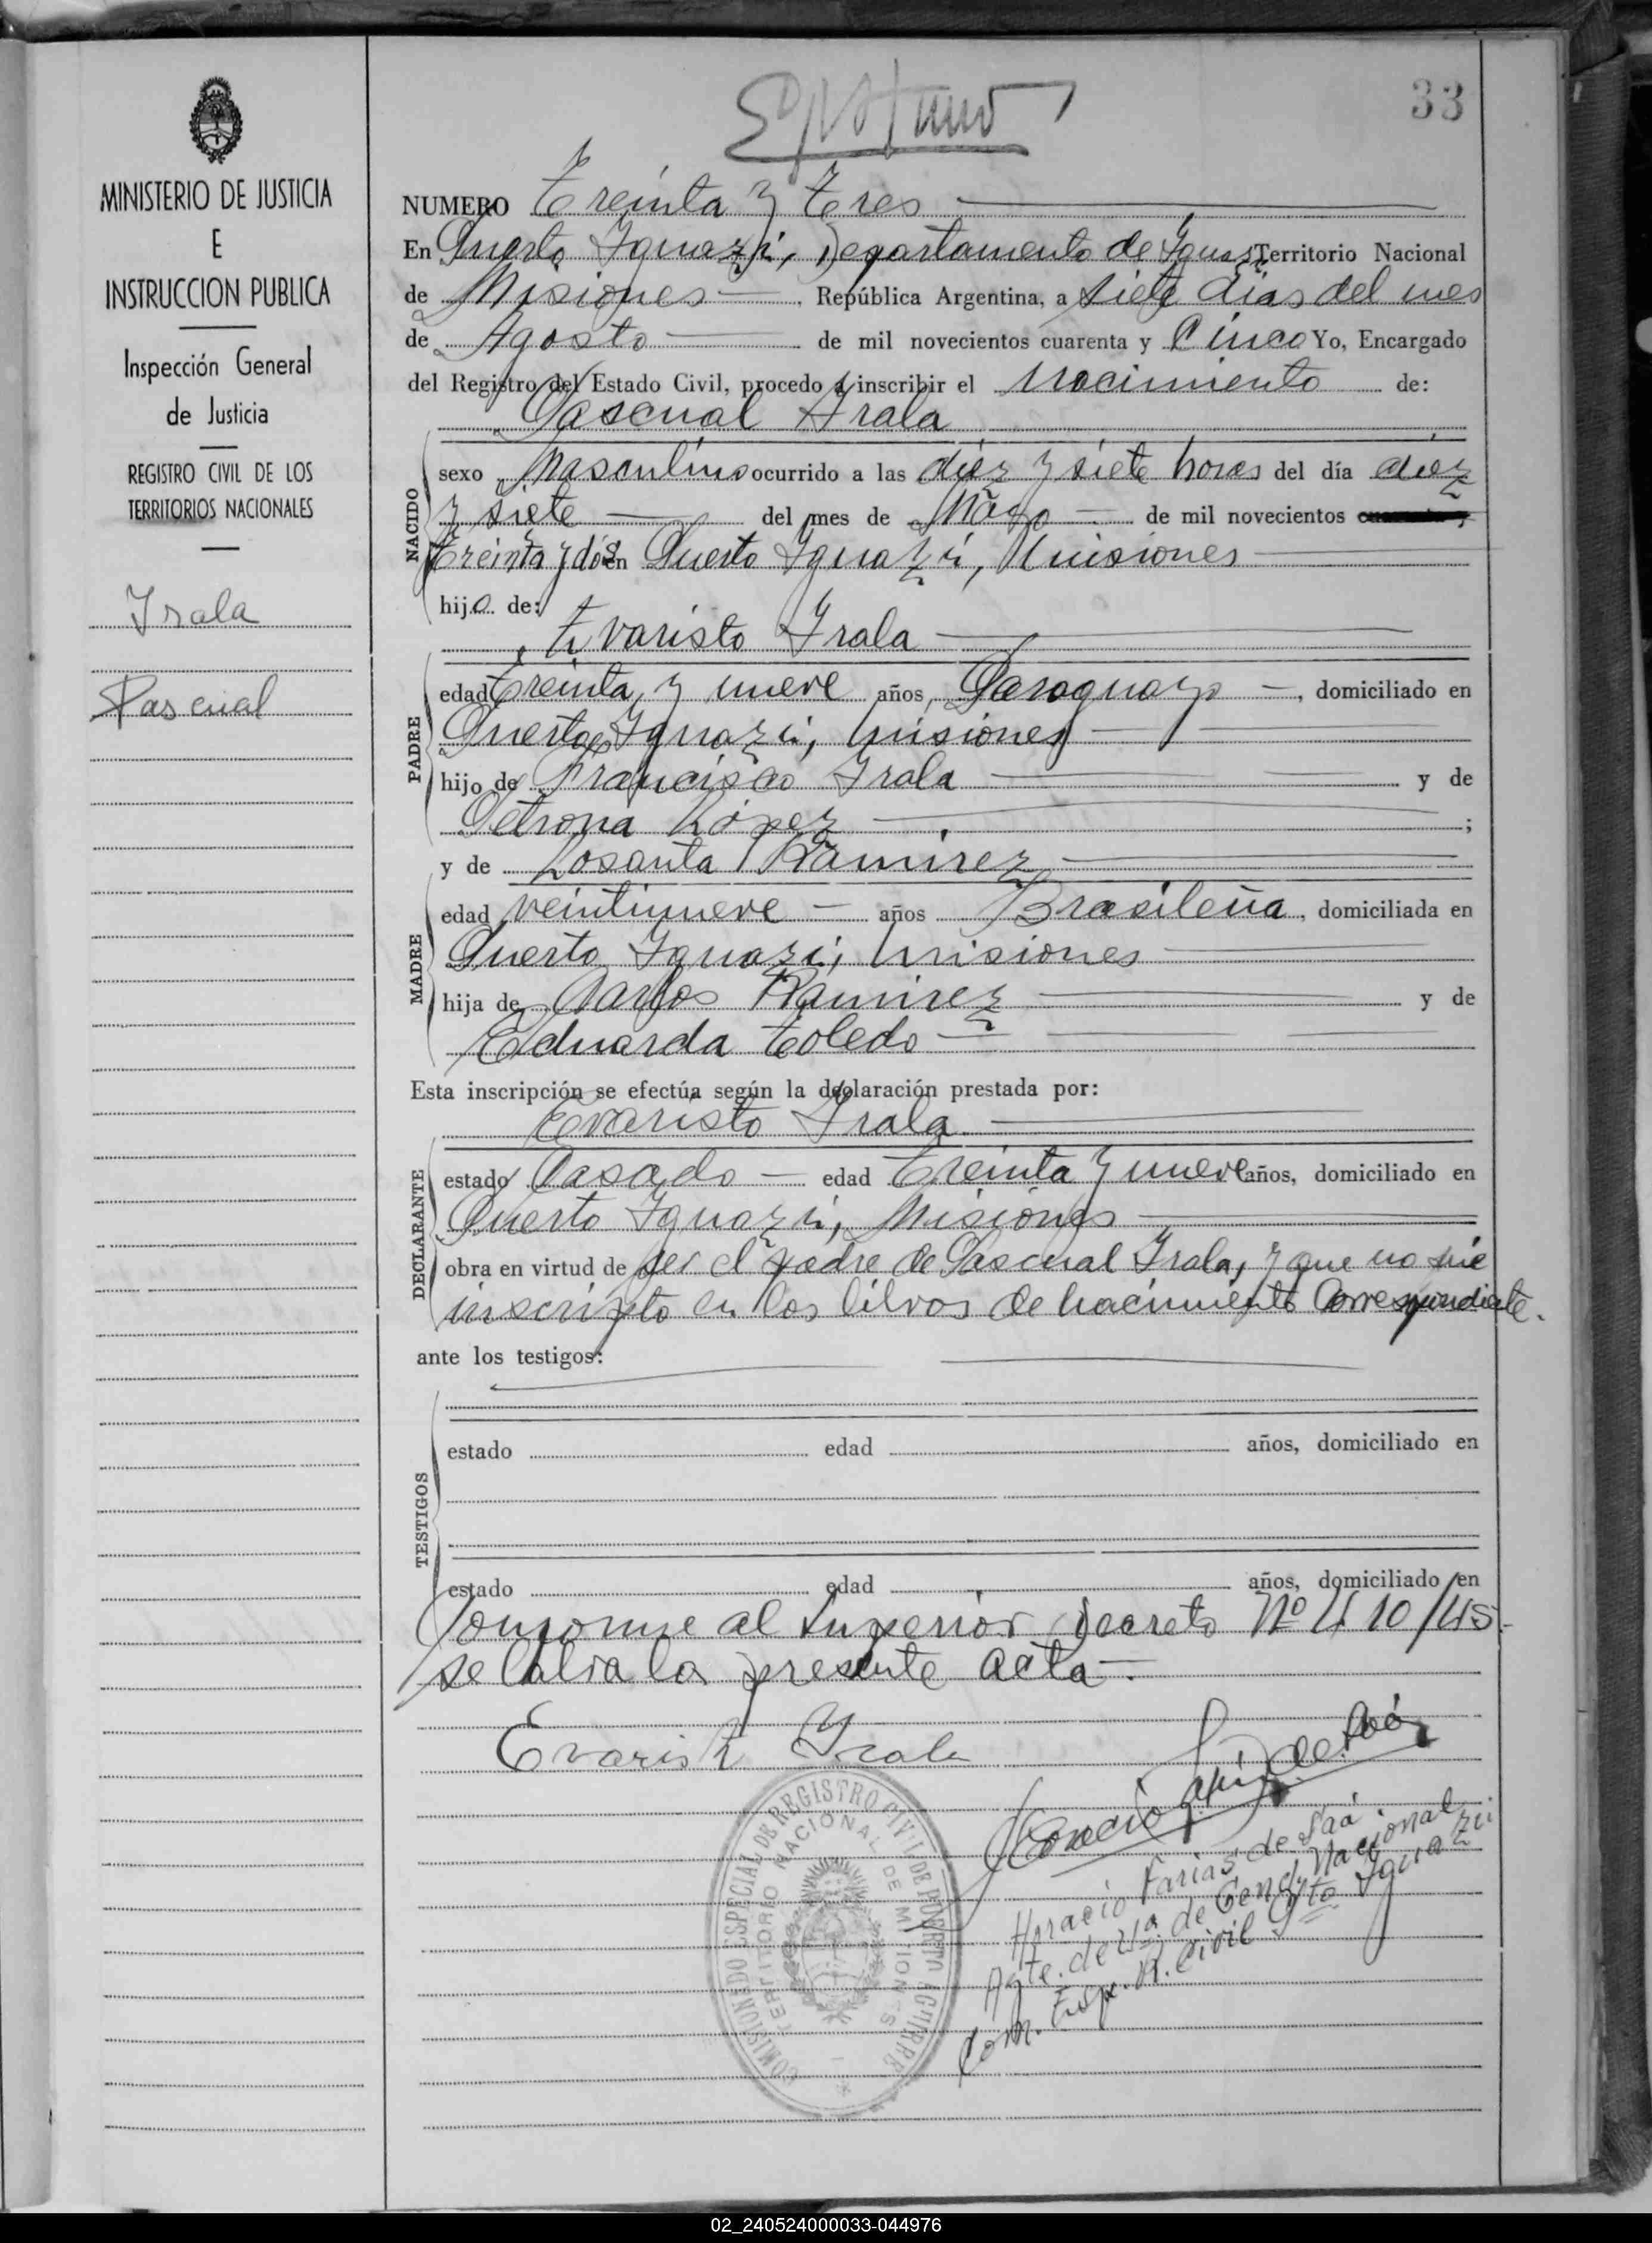 33
MINISTERIO DE JUSTICIA
E
INSTRUCCION PUBLICA
Inspección General
de Justicia
REGISTRO CIVIL DE LOS
TERRITORIOS NACIONALES
Irala
Pascual
NUMERO Treinta y Tres
En Puerto Iguazú, Departamento de Iguazú Territorio Nacional
de Misiones, República Argentina, a siete días del mes
de Agosto de mil novecientos cuarenta y Cinco Yo, Encargado
del Registro del Estado Civil, procedo a inscribir el Nacimiento de:
Pascual Irala
NACIDO
sexo Masculino ocurrido a las diez y siete horas del día diez
y siete del mes de Mayo de mil novecientos
treinta y dós en Puerto Iguazú, Misiones
hijo de:
Evaristo Irala
PADRE
edad treinta y nueve años, Paraguayo, domiciliado en
Puerto Iguazú, Misiones
hijo de Francisco Irala y de
Petrona López ;
y de Losanta Ramirez
MADRE
edad veintinueve años Brasileña, domiciliada en
Puerto Iguazú, Misiones
hija de Carlos Ramirez y de
Eduarda Toledo
Esta inscripción se efectúa según la declaración prestada por:
Evaristo Irala
DECLARANTE
estado Casado edad treinta y nueve años, domiciliado en
Puerto Iguazú, Misiones
obra en virtud de ser el padre de Pascual Irala, y que no fué
inscripto en los libros de nacimiento Correspondiente.
ante los testigos:
TESTIGOS
estado edad años, domiciliado en
estado edad años, domiciliado en
Conforme al Superior Decreto Nº 410/45.
se labra la presente acta.
Evaristo Irala
Horacio Farias de Saá
Horacio Farias de Saá
Agte. de 1ª de Gend. Nacional
Com. Esp. R. Civil Pto Iguazú
COMISIONADO ESPECIAL DE REGISTRO CIVIL DE PUERTO AGUIRRE
TERRITORIO NACIONAL DE MISIONES
02_240524000033-044976